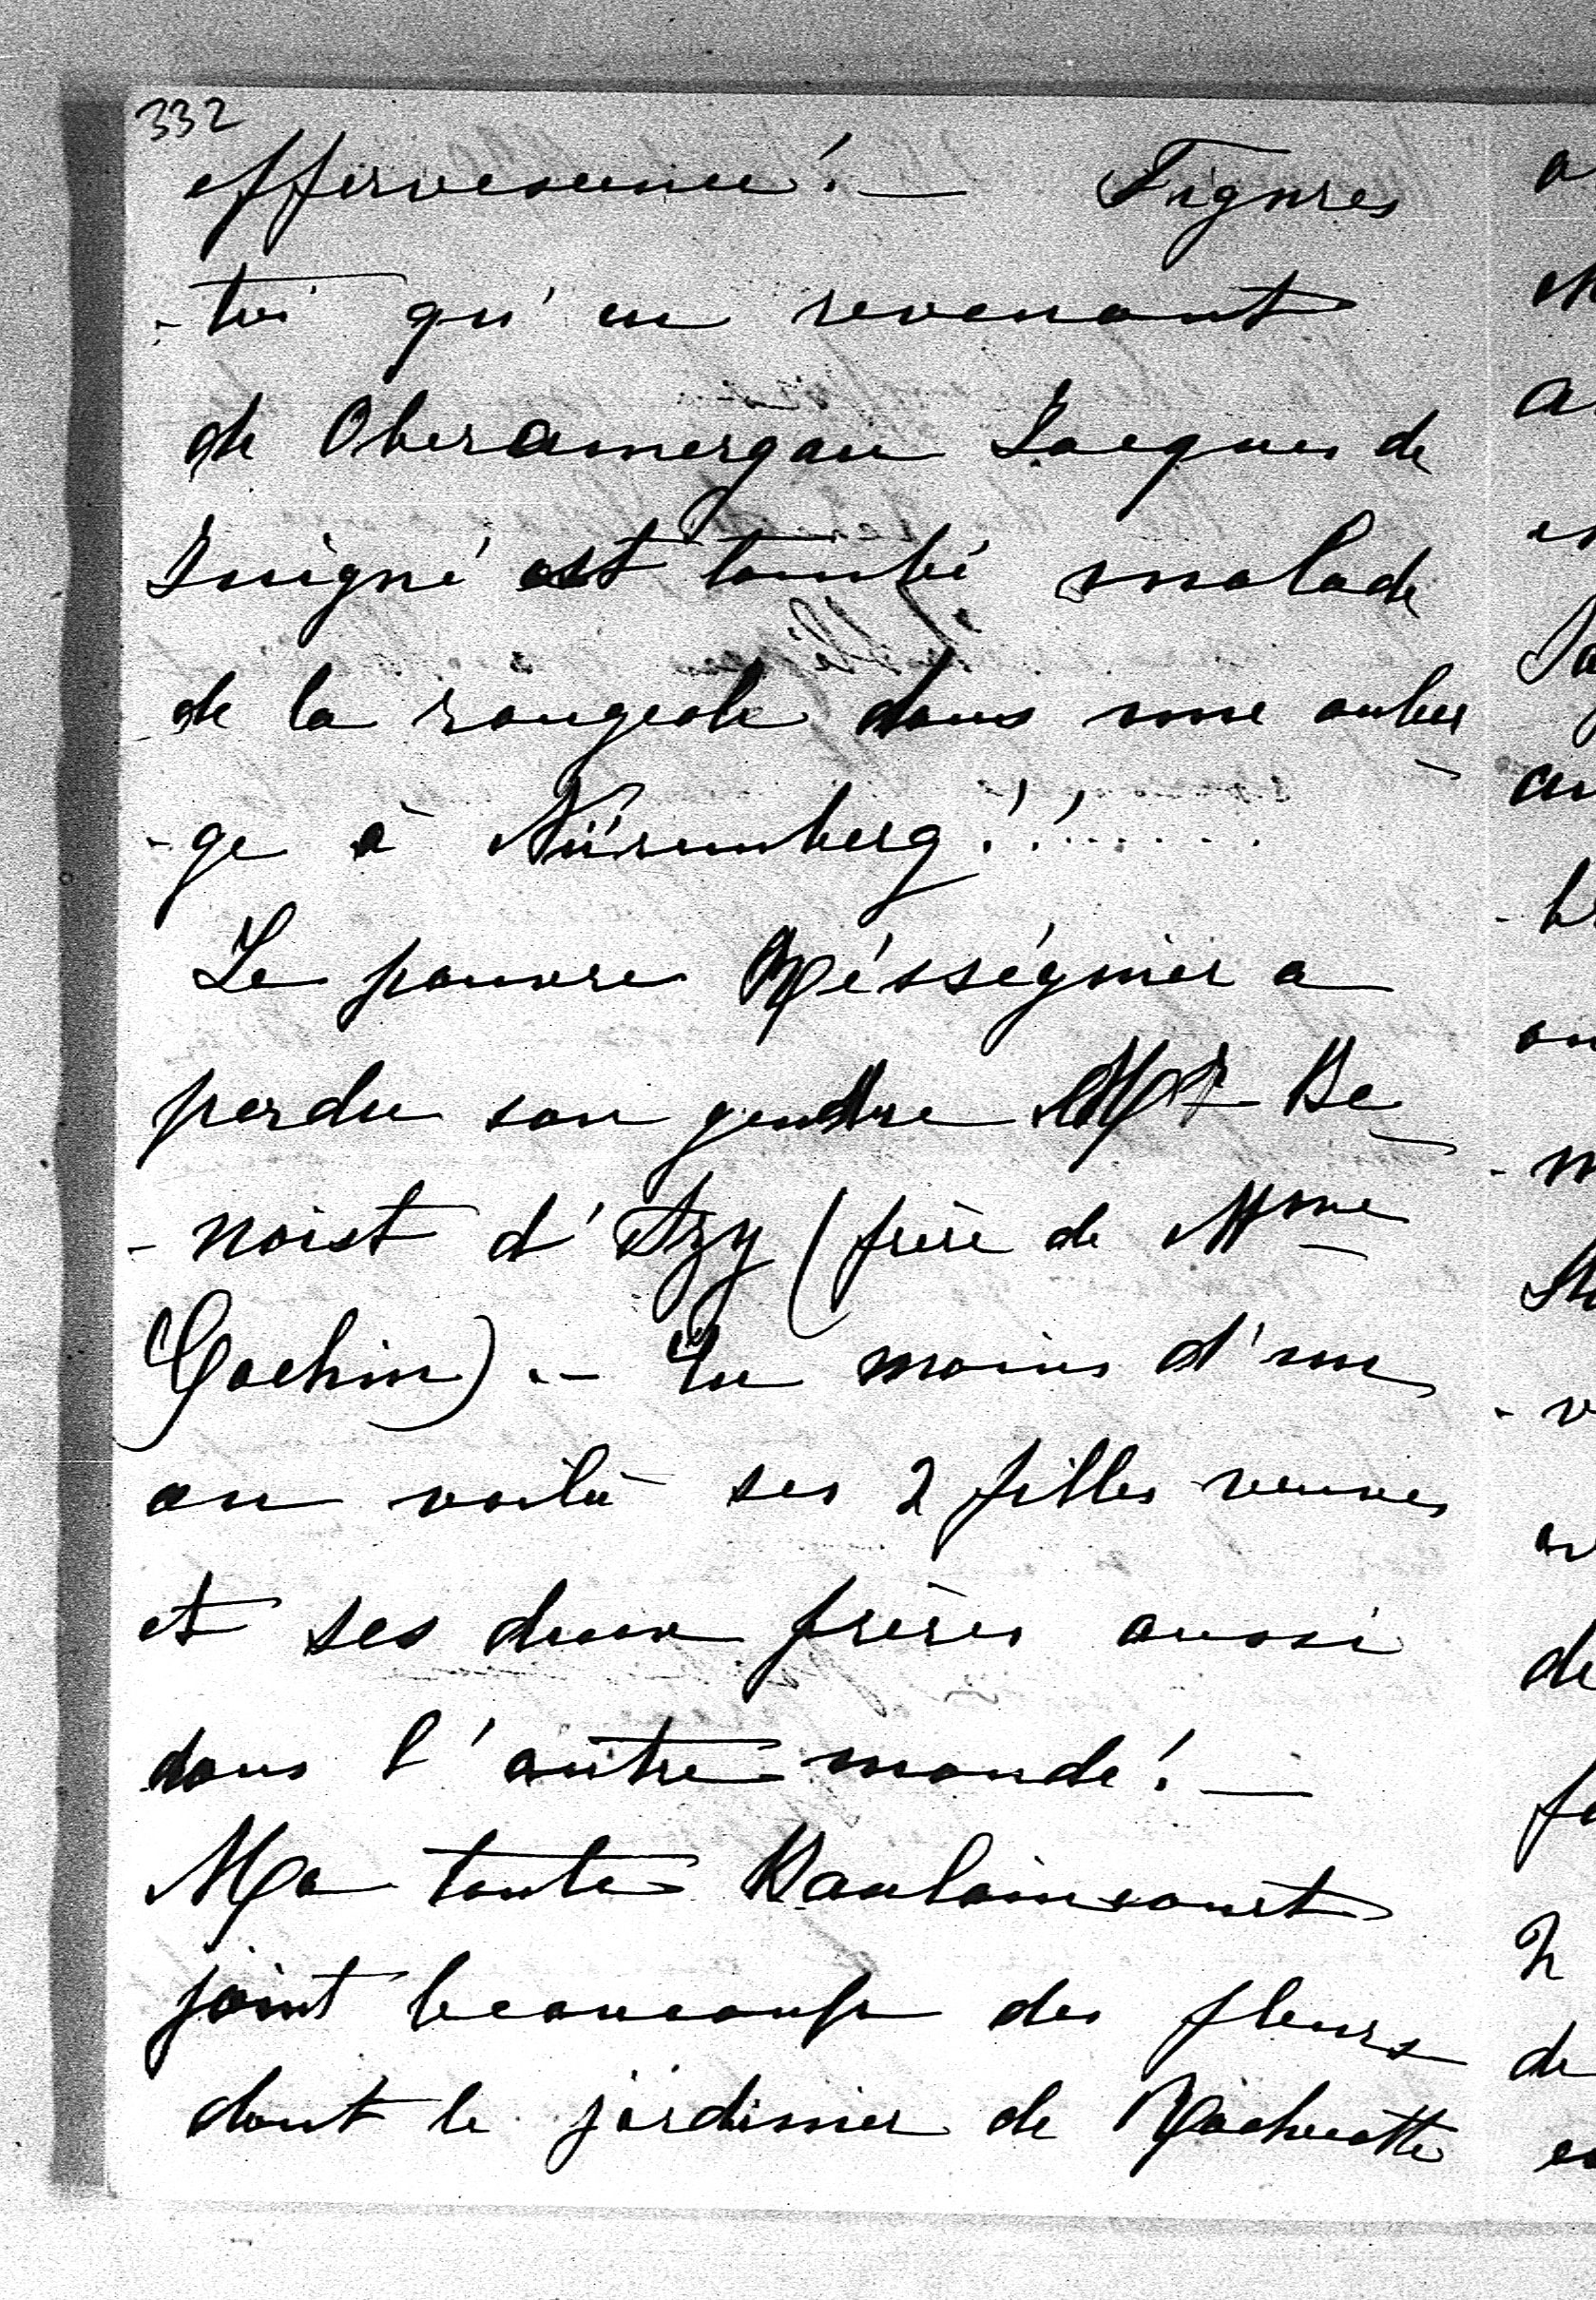 332
effervescence! — Figures
-toi qu'en revenant
de Oberamergau Jacques de
Juigné est tombé malade
de la rougeole dans une auber
-ge à Nüremberg!!.......
Le pauvre Mésségnier a
perdu son gendre Mr Be
-noist d'Azy (frère de Mme
Cochin). — En moins d'un
an voilà ses 2 filles veuves
et ses deux frères aussi
dans l'autre monde! —
Ma tante Caulaincourt
joint beaucoup des fleurs
dont le jardinier de